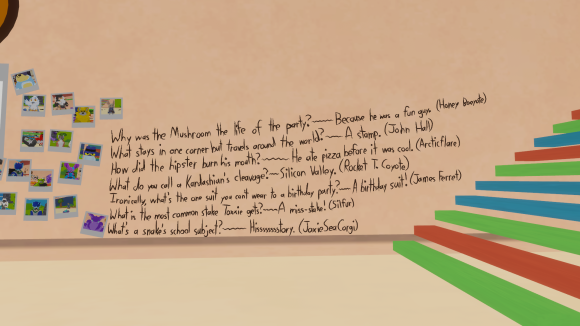 Why was the Mushroom the life of the party?~~~ Because he was a fun guy. (Honey Bonnete)
What stays in one corner but travels around the world?~~~ A stamp. (John Hall)
How did the hipster burn his mouth?~~~ He ate pizza before it was cool. (Arcticflare)
What do you call a Kardashian's cleavage?~~ Silicon Valley. (Rocket T. Coyote)
Ironically, what's the one suit you cant wear to a birthday party?~~ A birthday suit! (James Ferret)
What is the most common stake Toxie gets?~~ A miss-stake! (Silfur)
What's a snake's school subject?~~~ Hissssssstory. (JaxieSeaCorgi)